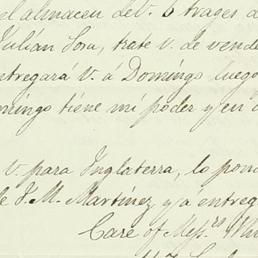 el almacen de V. 6 trages d
Julián Sosa, trate V. de vende
ntregará V. á Domingo luego
mingo tiene mi poder y en
V. para Inglaterra, lo pon
de J. M. Martínez y a entreg
Care of Messrs